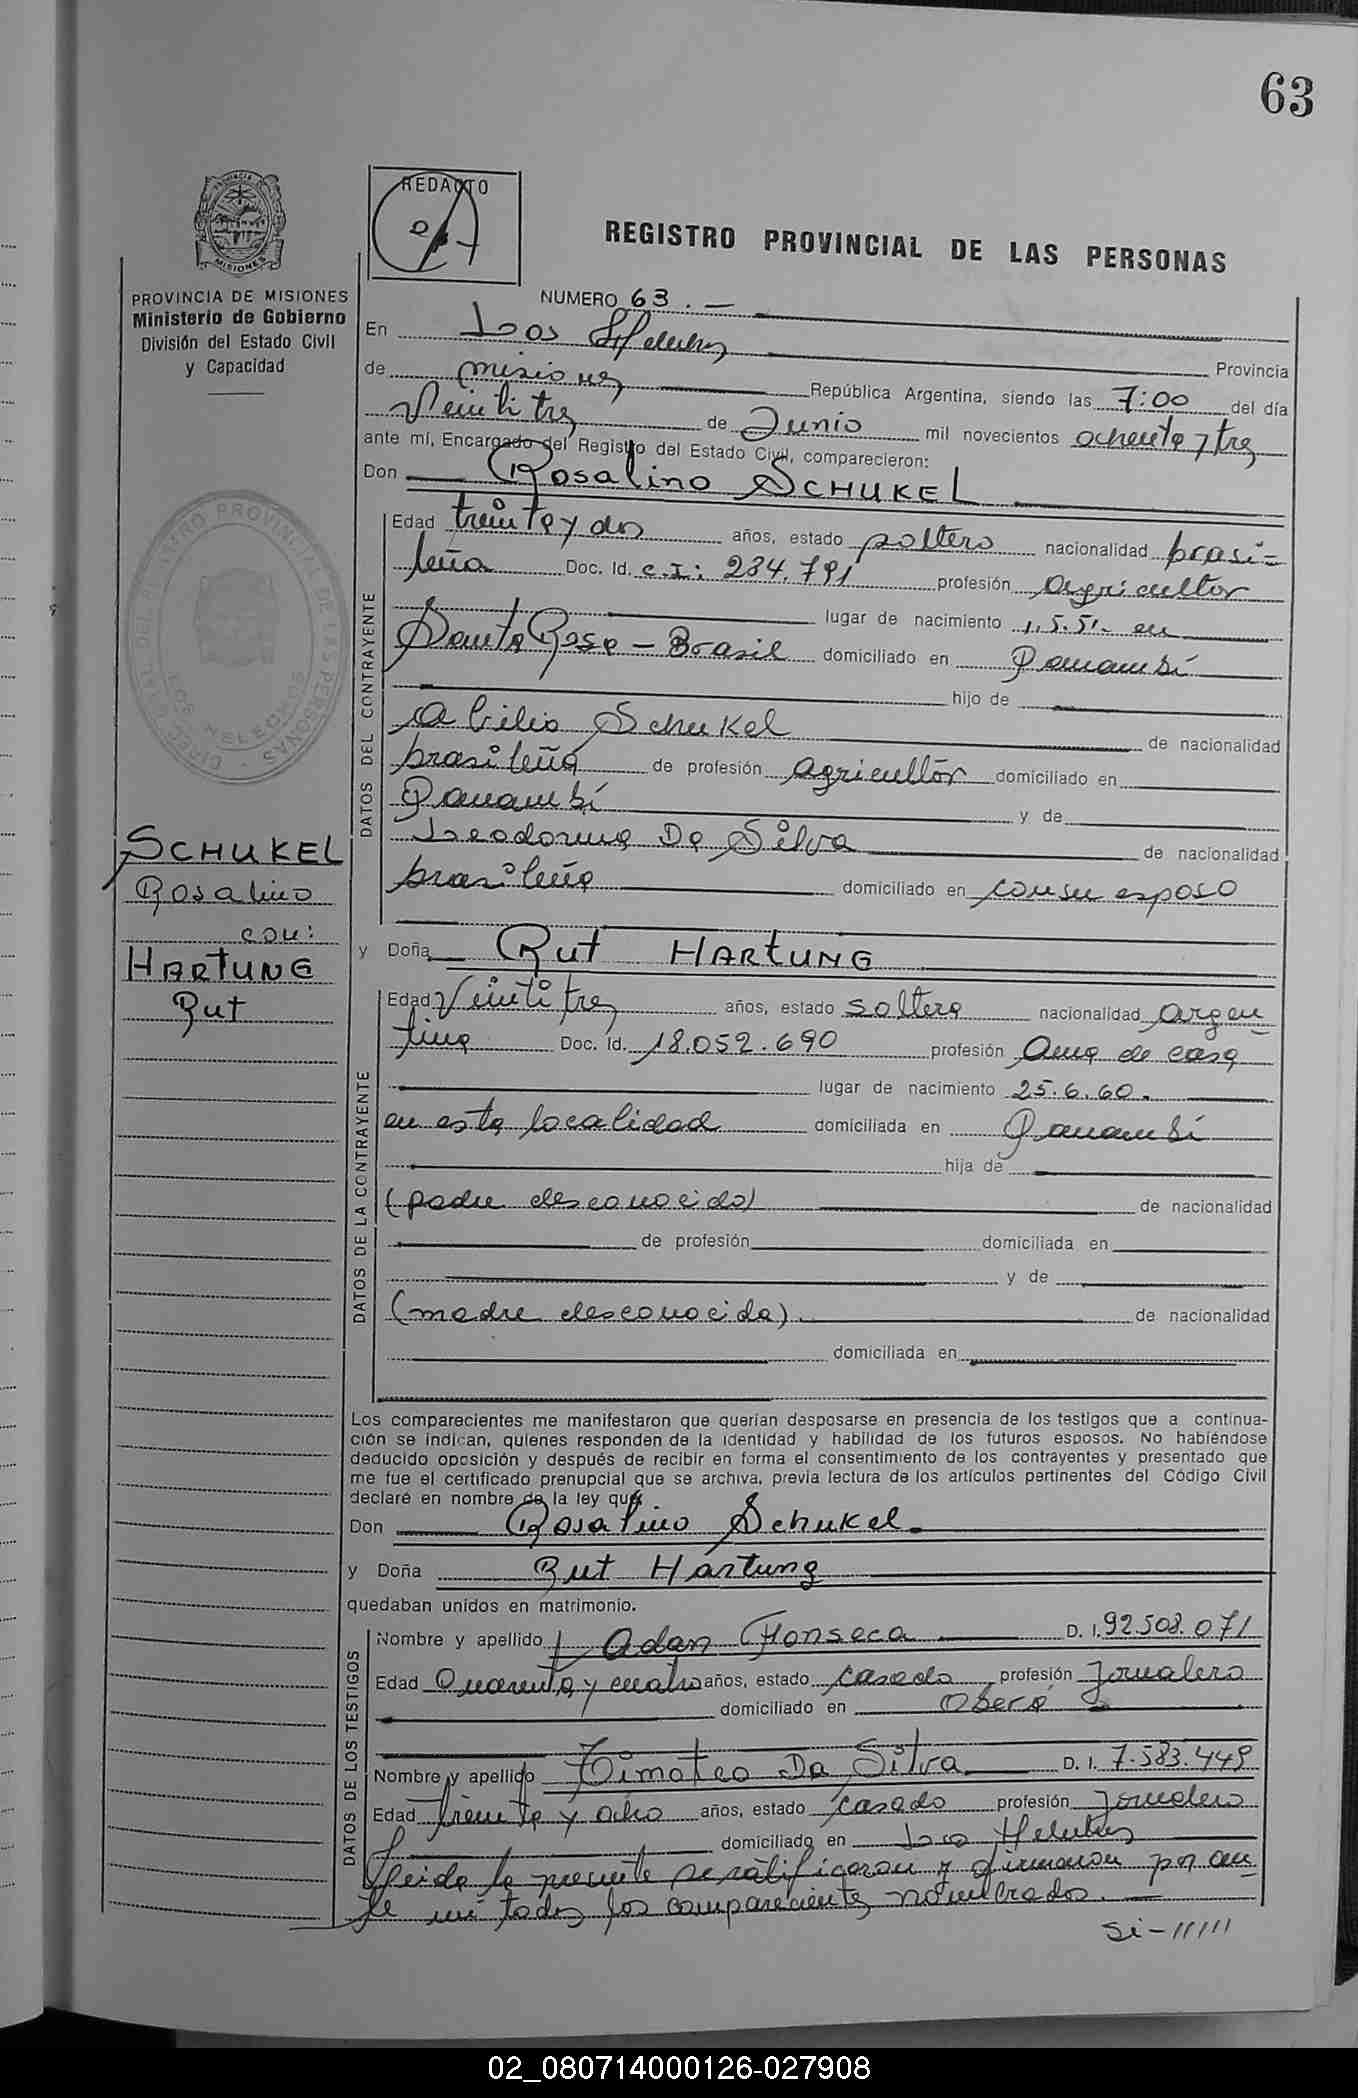 63
REDACTO
REGISTRO PROVINCIAL DE LAS PERSONAS
MISIONES
PROVINCIA DE MISIONES
Ministerio de Gobierno
División del Estado Civil
y Capacidad
NUMERO 63.—
En Los Helechos
Provincia
de Misiones República Argentina, siendo las 7:00 del día
Veintitres de Junio mil novecientos ochenta y tres
ante mí, Encargado del Registro del Estado Civil, comparecieron:
Don Rosalino SCHUKEL
DATOS DEL CONTRAYENTE
Edad treinta y dos años, estado soltero nacionalidad brasi=
leña Doc. Id. C.I: 234.791 profesión agricultor
lugar de nacimiento 1.5.51- en
Santa Rosa - Brasil domiciliado en Panambí
hijo de
Abilio Schukel de nacionalidad
brasileña de profesión agricultor domiciliado en
Panambí y de
Leodorina Da Silva de nacionalidad
brasileña domiciliado en con su esposo
SCHUKEL
Rosalino
con:
HARTUNG
Rut
y Doña Rut HARTUNG
DATOS DE LA CONTRAYENTE
Edad Veintitres años, estado soltera nacionalidad argen
tina Doc. Id. 18.052.690 profesión Ama de casa
lugar de nacimiento 25.6.60.
en esta localidad domiciliada en Panambí
hija de
(padre desconocido) de nacionalidad
de profesión domiciliada en
y de
(madre desconocida). de nacionalidad
domiciliada en
Los comparecientes me manifestaron que querían desposarse en presencia de los testigos que a continua-
ción se indican, quienes responden de la identidad y habilidad de los futuros esposos. No habiéndose
deducido oposición y después de recibir en forma el consentimiento de los contrayentes y presentado que
me fue el certificado prenupcial que se archiva, previa lectura de los artículos pertinentes del Código Civil
declaré en nombre de la ley que
Don Rosalino Schukel.
y Doña Rut Hartung
quedaban unidos en matrimonio.
DATOS DE LOS TESTIGOS
Nombre y apellido Adan Fonseca D. I. 92.508.071
Edad Cuarenta y cuatro años, estado casado profesión Jornalero
domiciliado en Oberá
Nombre y apellido Timoteo Da Silva D. I. 7.583.449
Edad treinta y ocho años, estado casado profesión Jornalero
domiciliado en Los Helechos
Leida la presente se ratificaron y firmaron por an
te mí todos los compareciente nombrados.—
Si-11111
02_080714000126-027908